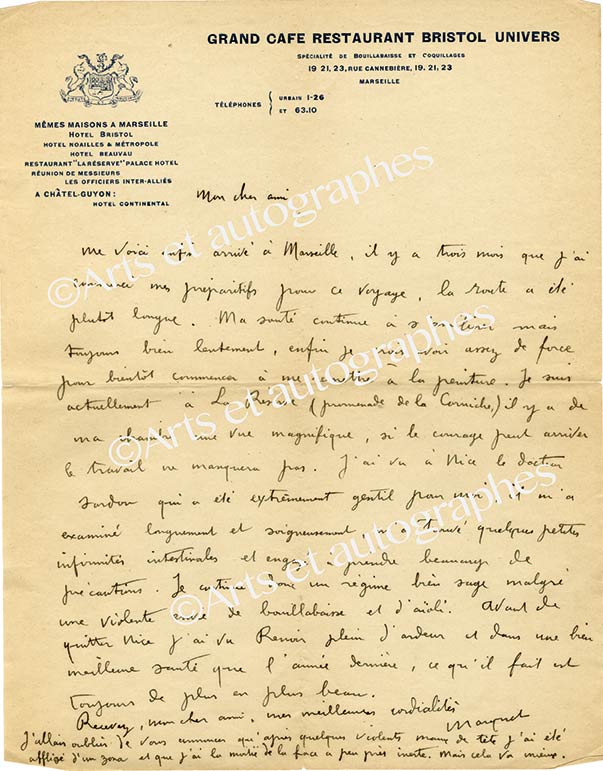 GRAND CAFE RESTAURANT BRISTOL UNIVERS
SPÉCIALITÉ DE BOUILLABAISSE ET COQUILLAGES
19, 21, 23, RUE CANNEBIÈRE, 19, 21, 23
MARSEILLE
TÉLÉPHONES { URBAIN 1-26
ET 63.10
MÊMES MAISONS A MARSEILLE
HOTEL BRISTOL
HOTEL NOAILLES & MÉTROPOLE
HOTEL BEAUVAU
RESTAURANT "LA RÉSERVE" PALACE HOTEL
RÉUNION DE MESSIEURS
LES OFFICIERS INTER-ALLIÉS
A CHÂTEL-GUYON :
HOTEL CONTINENTAL
Mon cher ami,
me voici enfin arrivé à Marseille, il y a trois mois que j'ai
commencé mes préparatifs pour ce voyage, la route a été
plutôt longue. Ma santé continue à s'améliorer mais
toujours bien lentement, enfin je crois avoir assez de force
pour bientôt commencer à me remettre à la peinture. Je suis
actuellement à La Réserve (promenade de la Corniche) il y a de
ma chambre une vue magnifique, si le courage peut arriver
le travail ne manquera pas. J'ai vu à Nice le docteur
Sardou qui a été extrêmement gentil pour moi il m'a
examiné longuement et soigneusement m'a trouvé quelques petites
infirmités intestinales et engagé à prendre beaucoup de
précautions. Je continue donc un régime bien sage malgré
une violente envie de bouillabaisse et d'aïoli. Avant de
quitter Nice j'ai vu Renoir plein d'ardeur et dans une bien
meilleure santé que l'année dernière, ce qu'il fait est
toujours de plus en plus beau.
Recevez, mon cher ami, mes meilleures cordialités
Marquet
J'allais oublier de vous annoncer qu'après quelques violents maux de tête j'ai été
affligé d'un zona et que j'ai la moitié de la face à peu près inerte. Mais cela va mieux.
©Arts et autographes
©Arts et autographes
©Arts et autographes